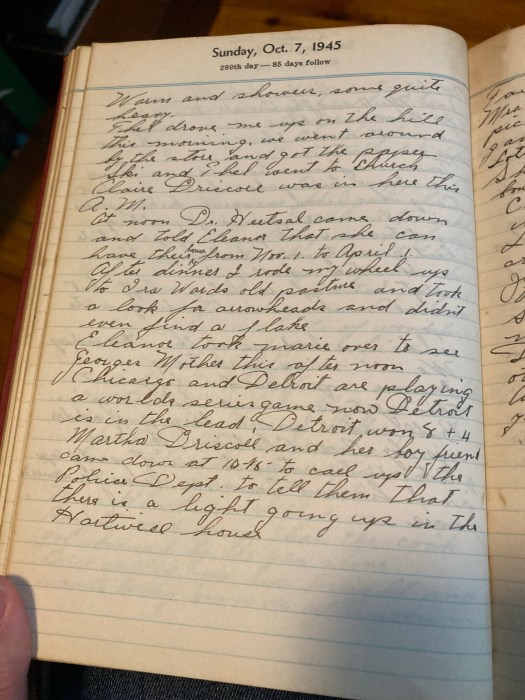 Sunday, Oct. 7, 1945
280th day — 85 days follow
Warm and showers, some quite
heavy.
Ethel drove me up on the hill
this morning, we went around
by the store and got the papers
Ski and Ethel went to Church
Claire Driscoll was in here this
A. M.
At noon Dr. Heetsal came down
and told Eleanor that she can
have their house from Nov. 1. to April 1.
After dinner I rode my wheel up
to Ira Wards old pasture and took
a look for arrowheads and didn't
even find a flake
Eleanor took marie over to see
Georges Mother this after noon
Chicargo and Detroit are playing
a worlds series game now Detroit
is in the lead, Detroit won 8 + 4
Martha Driscoll and her boy friend
came down at 10-15- to call up the
Police Dept. to tell them that
there is a light going up in the
Hartwell house